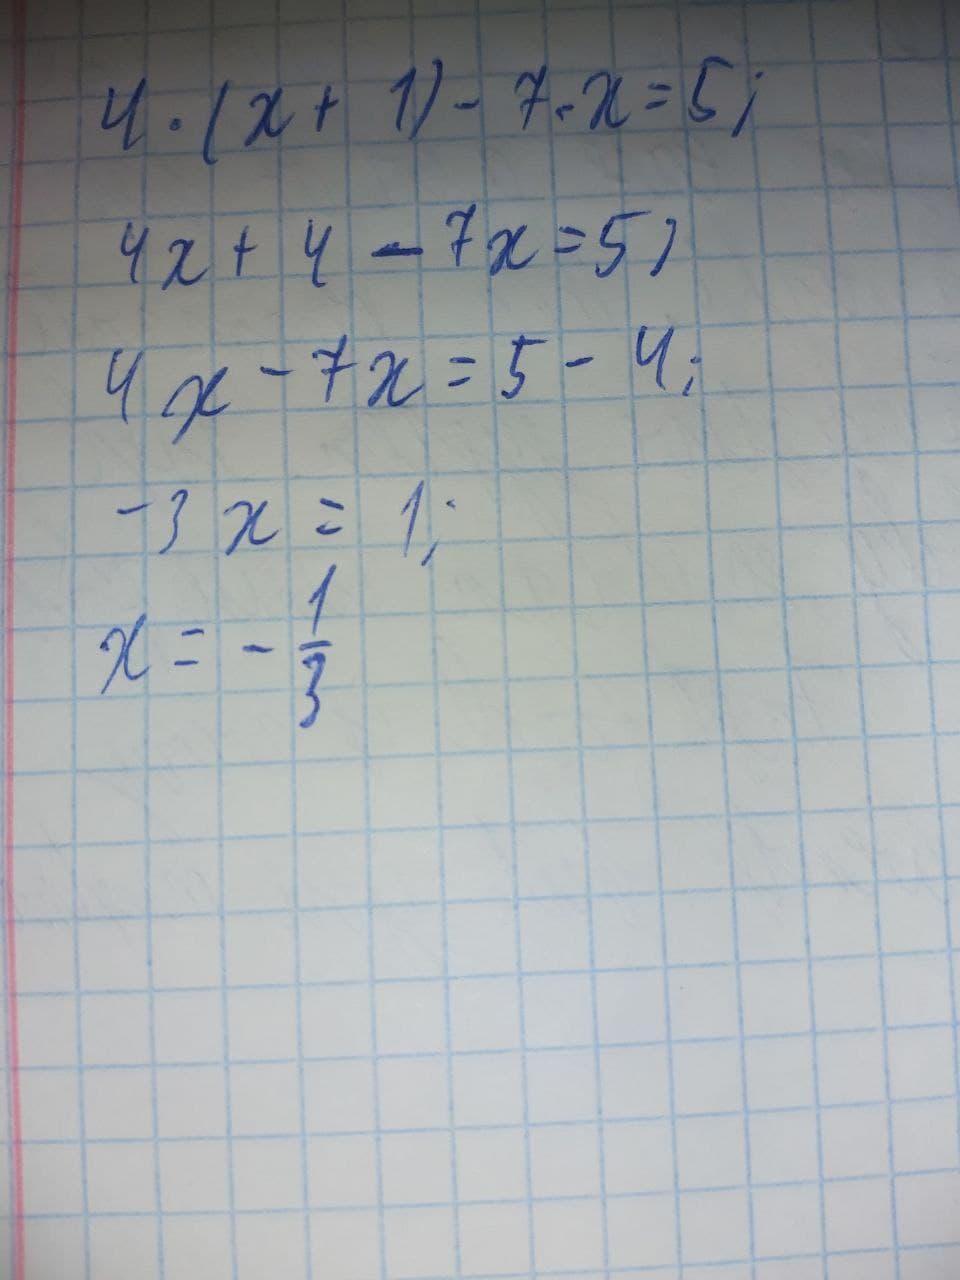 4·(x+1)-7·x=5;
4x+4-7x=5;
4x-7x=5-4;
-3x=1;
x=-1/3